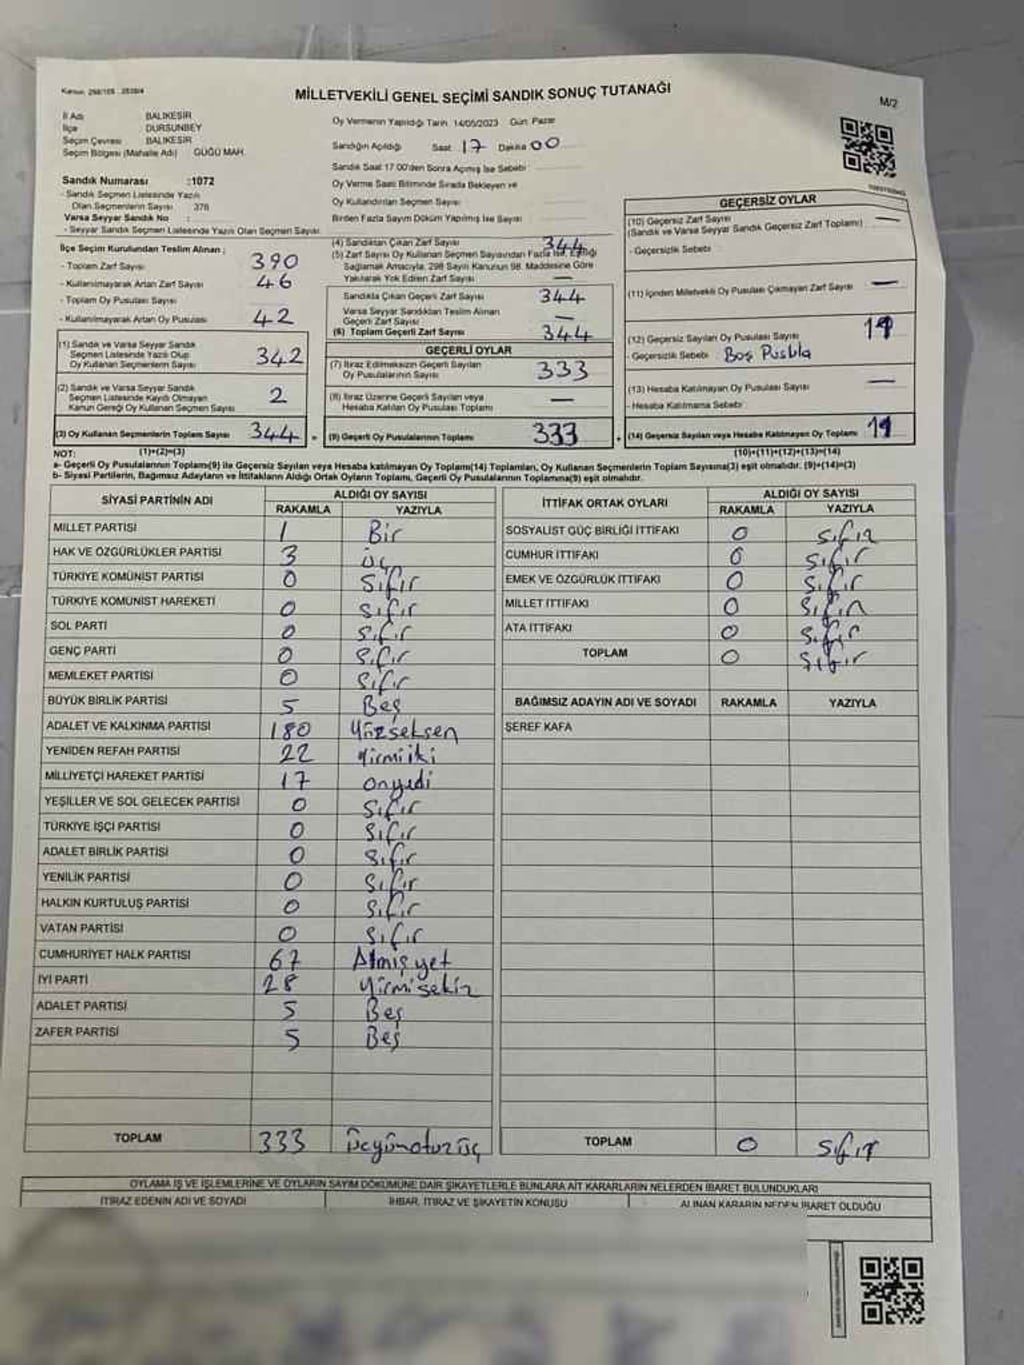 Kanun: 298/105 - 2839/4
MİLLETVEKİLİ GENEL SEÇİMİ SANDIK SONUÇ TUTANAĞI
M/2
İl Adı BALIKESİR
İlçe DURSUNBEY
Seçim Çevresi BALIKESİR
Seçim Bölgesi (Mahalle Adı) GÜĞÜ MAH.
Sandık Numarası :1072
- Sandık Seçmen Listesinde Yazılı
Olan Seçmenlerin Sayısı 376
Varsa Seyyar Sandık No :
- Seyyar Sandık Seçmen Listesinde Yazılı Olan Seçmen Sayısı
Oy Vermenin Yapıldığı Tarih: 14/05/2023 Gün: Pazar
Sandığın Açıldığı Saat 17 Dakika 00
Sandık Saat 17:00'den Sonra Açılmış İse Sebebi
Oy Verme Saati Bitiminde Sırada Bekleyen ve
Oy Kullandırılan Seçmen Sayısı
Birden Fazla Sayım Döküm Yapılmış İse Sayısı
İlçe Seçim Kurulundan Teslim Alınan ;
- Toplam Zarf Sayısı 390
- Kullanılmayarak Artan Zarf Sayısı 46
- Toplam Oy Pusulası Sayısı
- Kullanılmayarak Artan Oy Pusulası 42
(1) Sandık ve Varsa Seyyar Sandık
Seçmen Listesinde Yazılı Olup
Oy Kullanan Seçmenlerin Sayısı 342
(2) Sandık ve Varsa Seyyar Sandık
Seçmen Listesinde Kaydı Olmayan
Kanun Gereği Oy Kullanan Seçmen Sayısı 2
(3) Oy Kullanan Seçmenlerin Toplam Sayısı 344 =
(4) Sandıktan Çıkan Zarf Sayısı 344
(5) Zarf Sayısı Oy Kullanan Seçmen Sayısından Fazla İse, Eşitliği
Sağlamak Amacıyla, 298 Sayılı Kanunun 98. Maddesine Göre
Yakılarak Yok Edilen Zarf Sayısı —
Sandıkta Çıkan Geçerli Zarf Sayısı 344
Varsa Seyyar Sandıktan Teslim Alınan
Geçerli Zarf Sayısı —
(6) Toplam Geçerli Zarf Sayısı 344
GEÇERLİ OYLAR
(7) İtiraz Edilmeksizin Geçerli Sayılan
Oy Pusulalarının Sayısı 333
(8) İtiraz Üzerine Geçerli Sayılan veya
Hesaba Katılan Oy Pusulası Toplamı —
(9) Geçerli Oy Pusulalarının Toplamı 333 +
GEÇERSİZ OYLAR
(10) Geçersiz Zarf Sayısı —
(Sandık ve Varsa Seyyar Sandık Geçersiz Zarf Toplamı)
- Geçersizlik Sebebi :
(11) İçinden Milletvekili Oy Pusulası Çıkmayan Zarf Sayısı —
(12) Geçersiz Sayılan Oy Pusulası Sayısı 11
- Geçersizlik Sebebi : Boş Pusula
(13) Hesaba Katılmayan Oy Pusulası Sayısı —
- Hesaba Katılmama Sebebi :
(14) Geçersiz Sayılan veya Hesaba Katılmayan Oy Toplamı 11
NOT: (1)+(2)=(3) (10)+(11)+(12)+(13)=(14)
a- Geçerli Oy Pusulalarının Toplamı(9) ile Geçersiz Sayılan veya Hesaba katılmayan Oy Toplamı(14) Toplamları, Oy Kullanan Seçmenlerin Toplam Sayısına(3) eşit olmalıdır. (9)+(14)=(3)
b- Siyasi Partilerin, Bağımsız Adayların ve İttifakların Aldığı Ortak Oyların Toplamı, Geçerli Oy Pusulalarının Toplamına(9) eşit olmalıdır.
SİYASİ PARTİNİN ADI ALDIĞI OY SAYISI
RAKAMLA YAZIYLA
MİLLET PARTİSİ 1 Bir
HAK VE ÖZGÜRLÜKLER PARTİSİ 3 üç
TÜRKİYE KOMÜNİST PARTİSİ 0 Sıfır
TÜRKİYE KOMÜNİST HAREKETİ 0 Sıfır
SOL PARTİ 0 Sıfır
GENÇ PARTİ 0 Sıfır
MEMLEKET PARTİSİ 0 Sıfır
BÜYÜK BİRLİK PARTİSİ 5 Beş
ADALET VE KALKINMA PARTİSİ 180 Yüzseksen
YENİDEN REFAH PARTİSİ 22 Yirmiiki
MİLLİYETÇİ HAREKET PARTİSİ 17 onyedi
YEŞİLLER VE SOL GELECEK PARTİSİ 0 Sıfır
TÜRKİYE İŞÇİ PARTİSİ 0 Sıfır
ADALET BİRLİK PARTİSİ 0 Sıfır
YENİLİK PARTİSİ 0 Sıfır
HALKIN KURTULUŞ PARTİSİ 0 Sıfır
VATAN PARTİSİ 0 Sıfır
CUMHURİYET HALK PARTİSİ 67 Atmışyet
İYİ PARTİ 28 Yirmisekiz
ADALET PARTİSİ 5 Beş
ZAFER PARTİSİ 5 Beş
TOPLAM 333 üçyüzotuzüç
İTTİFAK ORTAK OYLARI ALDIĞI OY SAYISI
RAKAMLA YAZIYLA
SOSYALİST GÜÇ BİRLİĞİ İTTİFAKI 0 Sıfır
CUMHUR İTTİFAKI 0 Sıfır
EMEK VE ÖZGÜRLÜK İTTİFAKI 0 Sıfır
MİLLET İTTİFAKI 0 Sıfır
ATA İTTİFAKI 0 Sıfır
TOPLAM 0 Sıfır
BAĞIMSIZ ADAYIN ADI VE SOYADI RAKAMLA YAZIYLA
ŞEREF KAFA
TOPLAM 0 Sıfır
OYLAMA İŞ VE İŞLEMLERİNE VE OYLARIN SAYIM DÖKÜMÜNE DAİR ŞİKAYETLERLE BUNLARA AİT KARARLARIN NELERDEN İBARET BULUNDUKLARI
İTİRAZ EDENİN ADI VE SOYADI İHBAR, İTİRAZ VE ŞİKAYETİN KONUSU ALINAN KARARIN NEDEN İBARET OLDUĞU